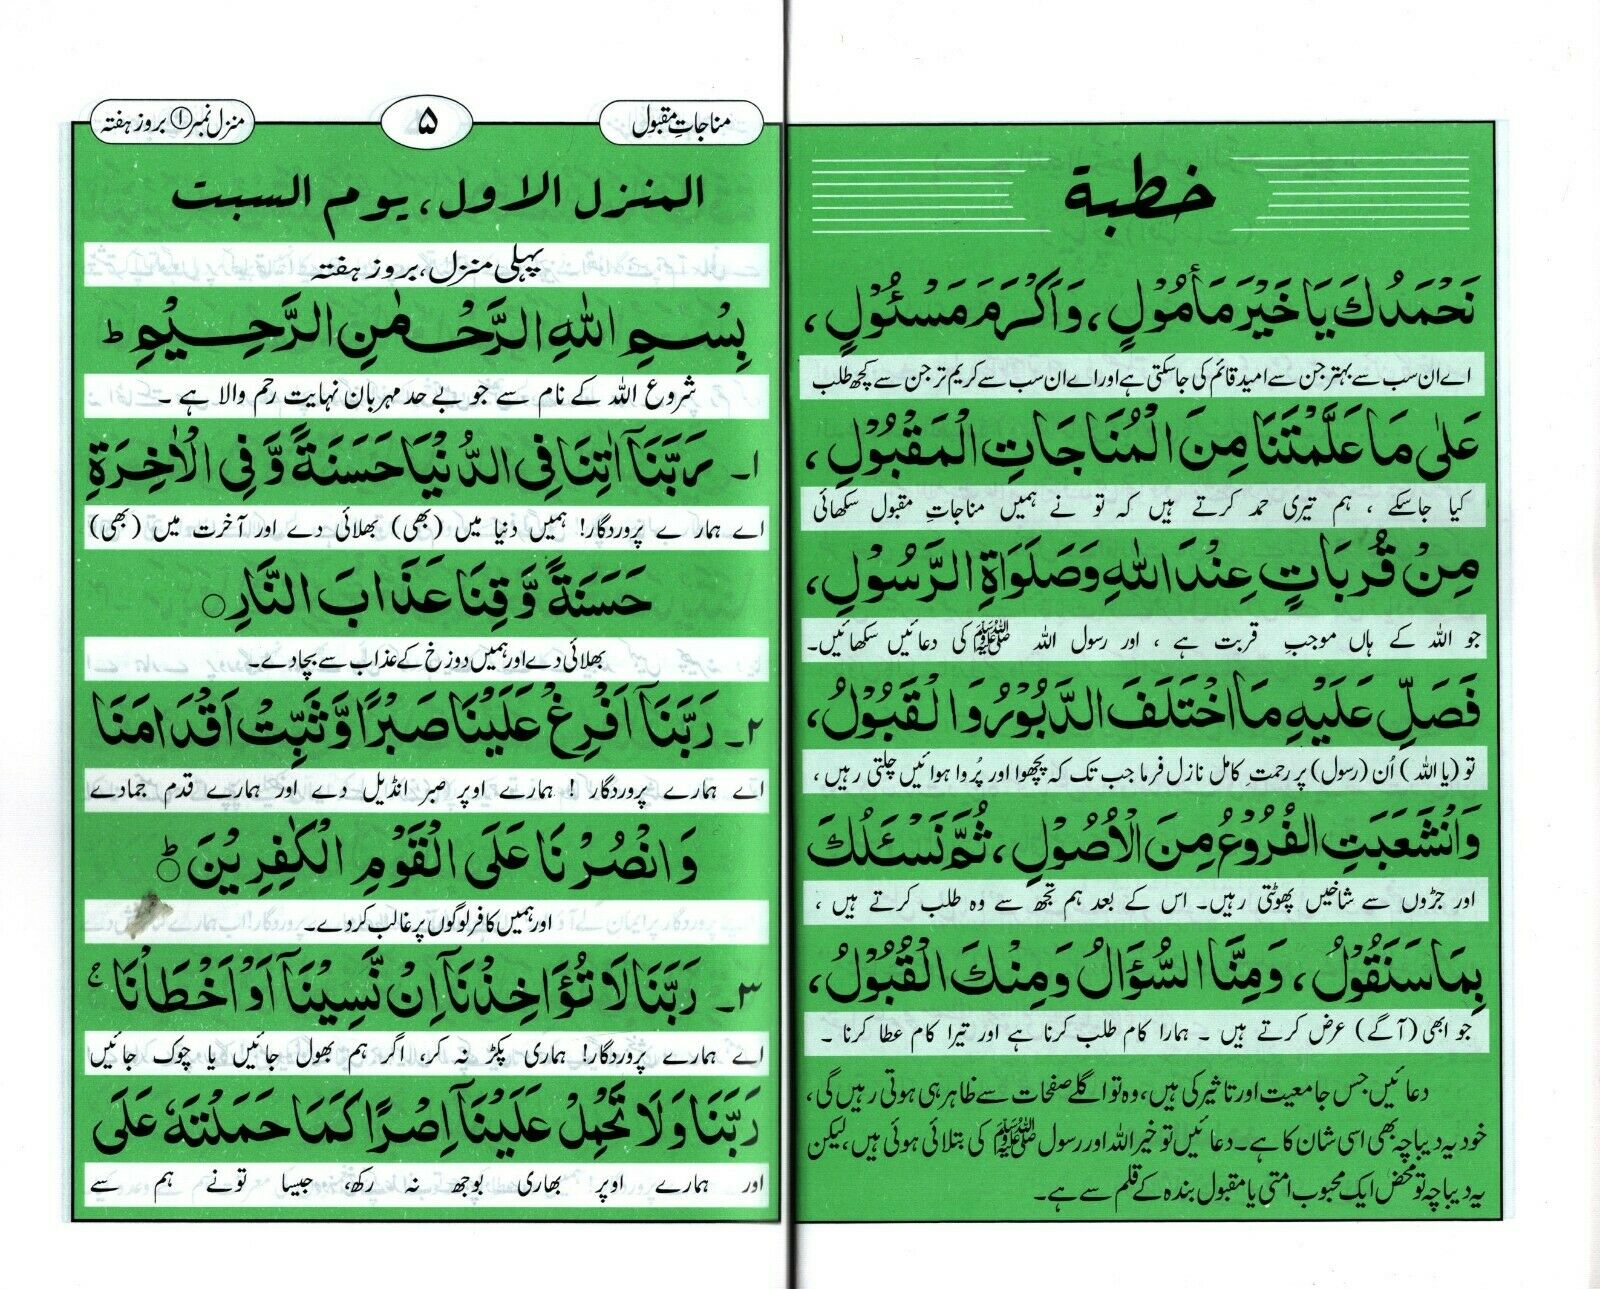 خطبة
نَحْمَدُكَ يَا خَيْرَ مَأْمُوْلٍ، وَاَكْرَمَ مَسْئُوْلٍ،
اے ان سب سے بہتر جن سے امید قائم کی جاسکتی ہے اور اے ان سب سے کریم تر جن سے کچھ طلب
عَلٰى مَا عَلَّمْتَنَا مِنَ الْمُنَاجَاتِ الْمَقْبُوْلِ،
کیا جاسکے ، ہم تیری حمد کرتے ہیں کہ تو نے ہمیں مناجاتِ مقبول سکھائی
مِنْ قُرُبَاتٍ عِنْدَ اللهِ وَصَلَوَاةِ الرَّسُوْلِ،
جو اللہ کے ہاں موجب قربت ہے ، اور رسول اللہ ﷺ کی دعائیں سکھائیں۔
فَصَلِّ عَلَيْهِ مَا اخْتَلَفَ الدَّبُوْرُ وَالْقَبُوْلُ،
تو (یا اللہ) اُن (رسول) پر رحمتِ کامل نازل فرما جب تک کہ پچھوا اور پُروا ہوائیں چلتی رہیں ،
وَانْشَعَبَتِ الْفُرُوْعُ مِنَ الْاُصُوْلِ، ثُمَّ نَسْئَلُكَ
اور جڑوں سے شاخیں پھوٹتی رہیں۔ اس کے بعد ہم تجھ سے وہ طلب کرتے ہیں ،
بِمَا سَنَقُوْلُ، وَمِنَّا السُّؤَالُ وَمِنْكَ الْقُبُوْلُ،
جو ابھی (آگے) عرض کرتے ہیں ۔ ہمارا کام طلب کرنا ہے اور تیرا کام عطا کرنا ۔
دعائیں جس جامعیت اور تاثیر کی ہیں، وہ تو اگلے صفحات سے ظاہر ہی ہوتی رہیں گی،
خود یہ دیباچہ بھی اسی شان کا ہے۔ دعائیں تو خیر اللہ اور رسول ﷺ کی بتلائی ہوئی ہیں، لیکن
یہ دیباچہ تو محض ایک محبوب امتی یا مقبول بندہ کے قلم سے ہے۔
مناجاتِ مقبول
۵
منزل نمبر ۱ بروز ہفتہ
المنزل الاول، یوم السبت
پہلی منزل، بروز ہفتہ
بِسْمِ اللهِ الرَّحْمٰنِ الرَّحِيْمِ ط
شروع اللہ کے نام سے جو بے حد مہربان نہایت رحم والا ہے ۔
۱۔ رَبَّنَآ اٰتِنَا فِى الدُّنْيَا حَسَنَةً وَّفِى الْاٰخِرَةِ
اے ہمارے پروردگار! ہمیں دنیا میں (بھی) بھلائی دے اور آخرت میں (بھی)
حَسَنَةً وَّقِنَا عَذَابَ النَّارِ ○
بھلائی دے اور ہمیں دوزخ کے عذاب سے بچادے۔
۲۔ رَبَّنَآ اَفْرِغْ عَلَيْنَا صَبْرًا وَّثَبِّتْ اَقْدَامَنَا
اے ہمارے پروردگار ! ہمارے اوپر صبر انڈیل دے اور ہمارے قدم جمادے
وَانْصُرْنَا عَلَى الْقَوْمِ الْكٰفِرِيْنَ ○ط
اور ہمیں کافر لوگوں پر غالب کردے۔
۳۔ رَبَّنَا لَا تُؤَاخِذْنَآ اِنْ نَّسِيْنَآ اَوْ اَخْطَاْنَا ج
اے ہمارے پروردگار! ہماری پکڑ نہ کر، اگر ہم بھول جائیں یا چوک جائیں
رَبَّنَا وَلَا تَحْمِلْ عَلَيْنَآ اِصْرًا كَمَا حَمَلْتَهٗ عَلَى
اور ہمارے اوپر بھاری بوجھ نہ رکھ، جیسا تونے ہم سے